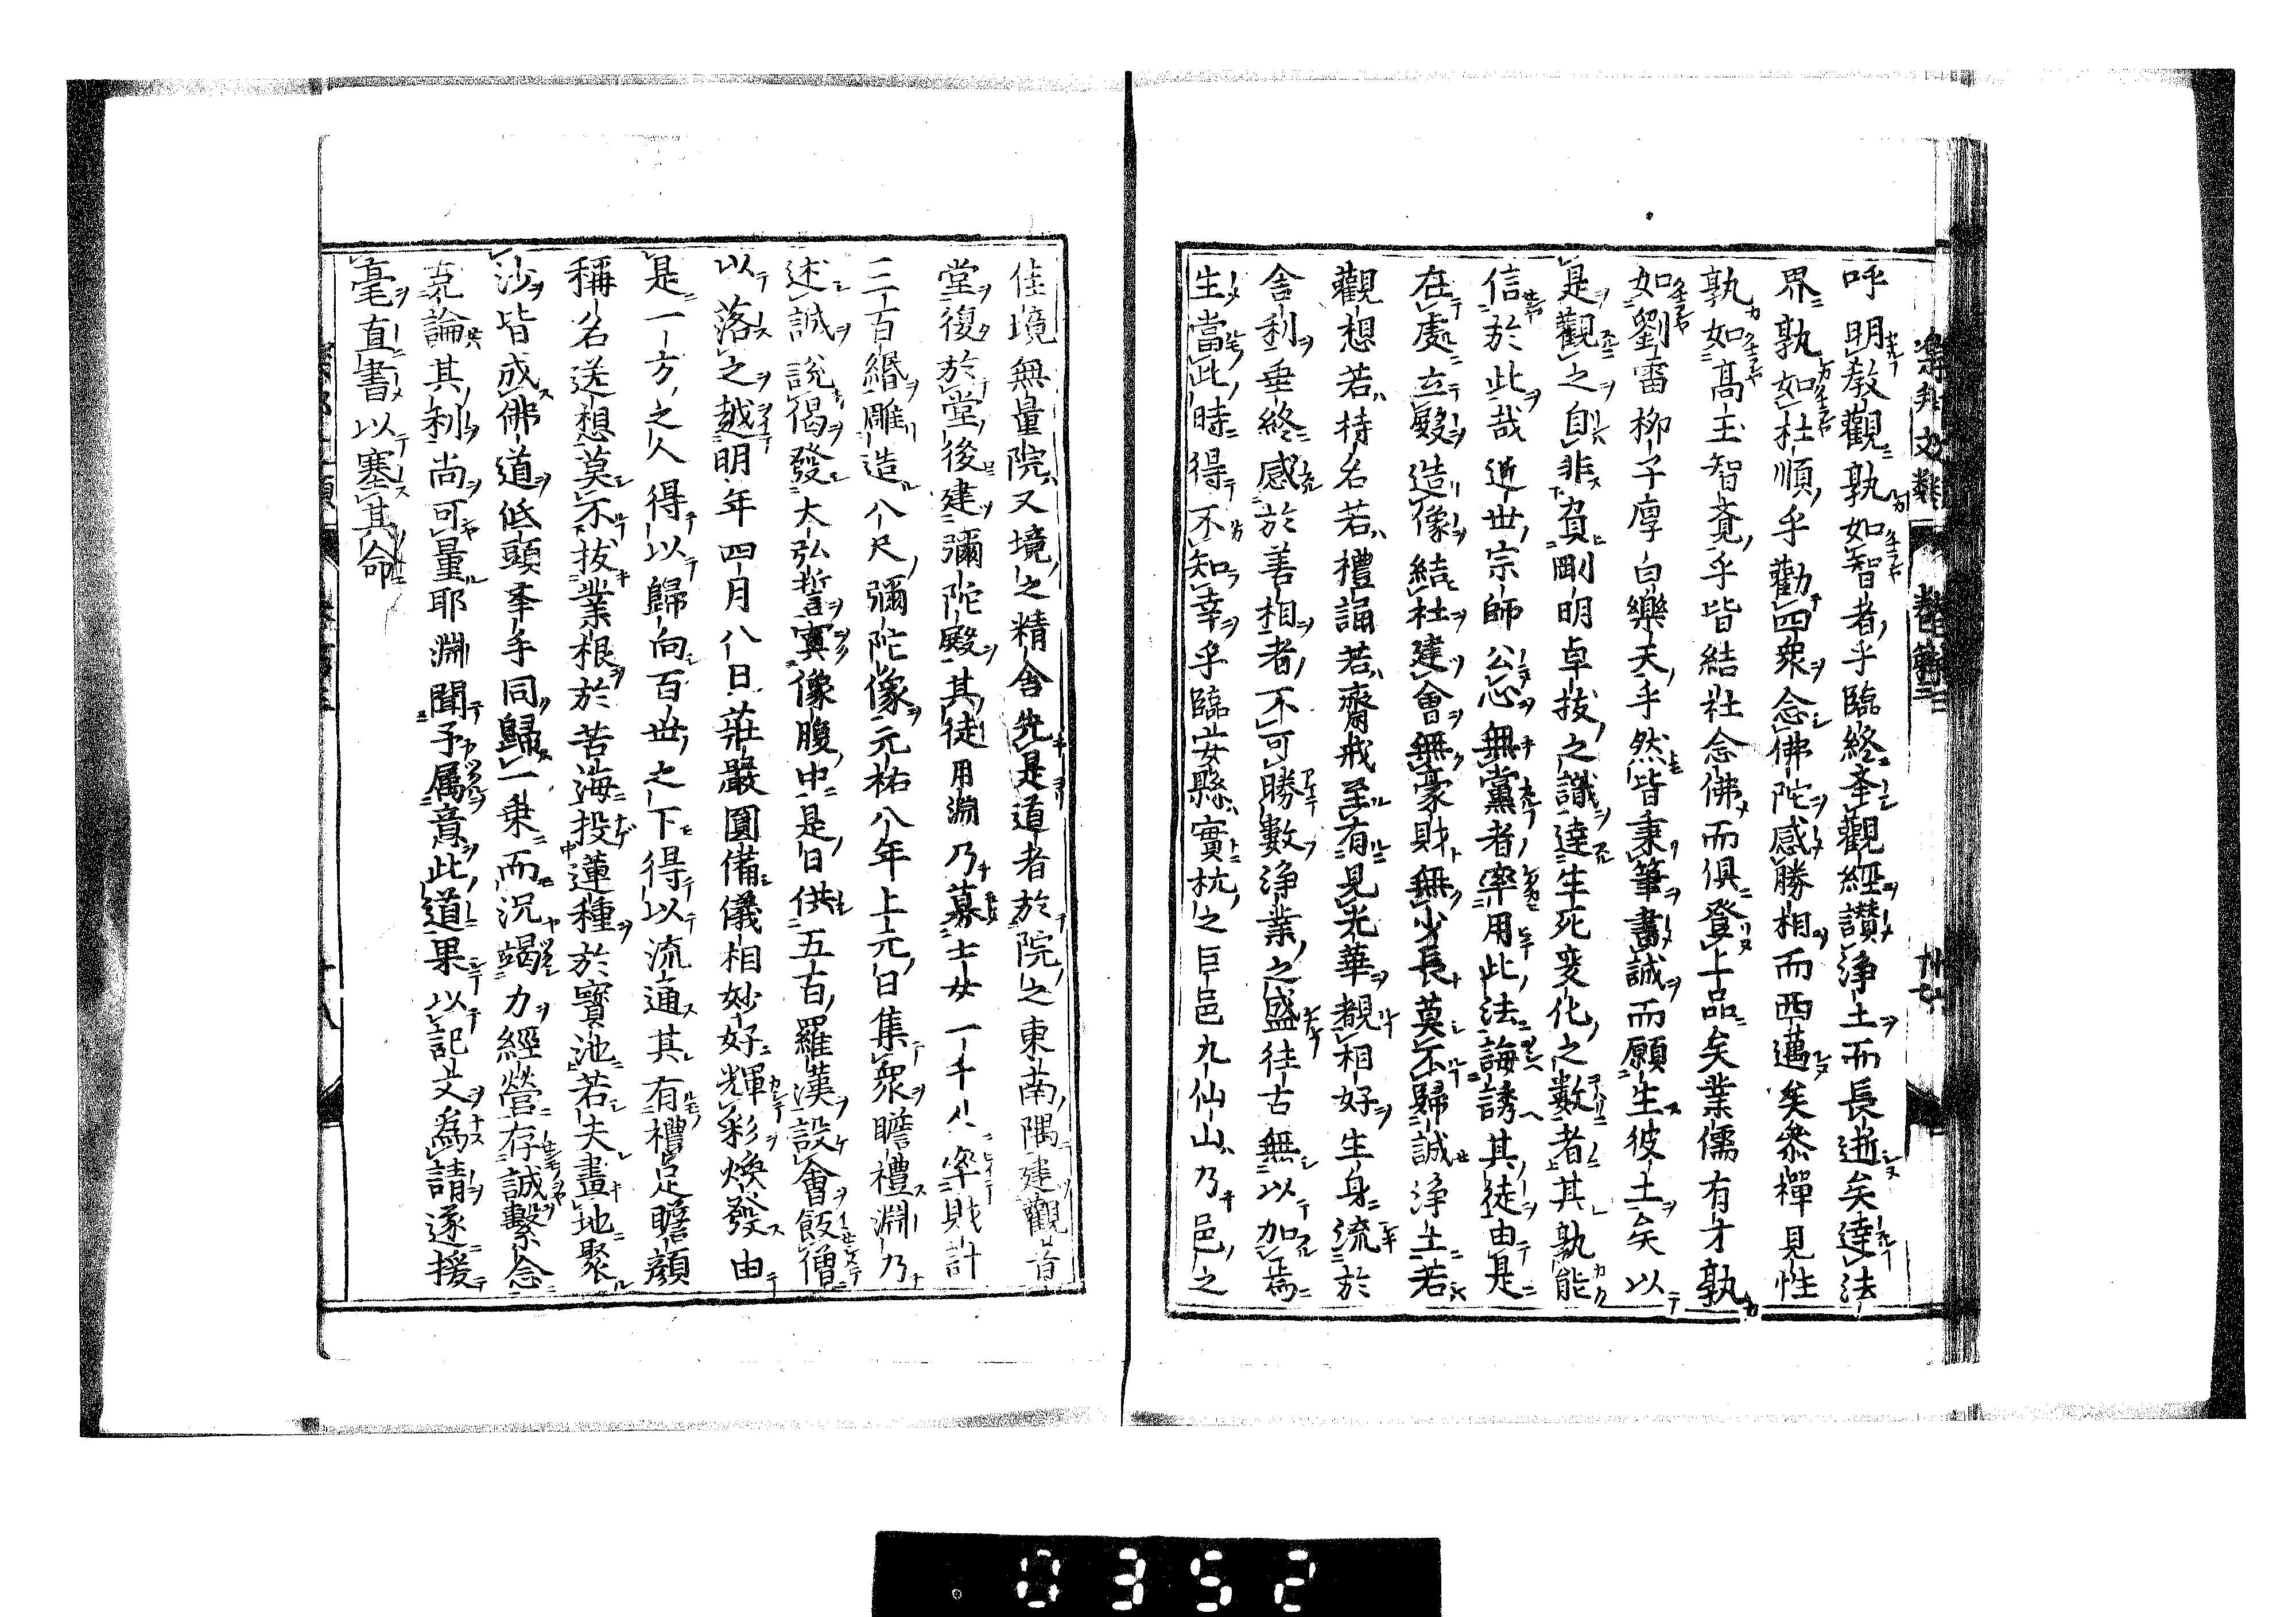 樂邦文類
呼明教觀孰如智者乎臨終舉觀經讚淨土而長逝矣達法
界孰如杜順乎勸四衆念佛陀感勝相而西邁矣叅禪見性
孰如髙玉智覺乎皆結社念佛而俱登上品矣業儒有才孰
如劉雷柳子厚白樂天乎然皆秉筆書誠而願生彼土矣以
是觀之自非負剛明卓拔之識達生死変化之數者其孰能
信於此哉近世宗師公心無黨者率用此法誨誘其徒由是
在處立殿造像結社建會無豪財無少長莫不歸誠淨土若
觀想若持名若禮誦若齋戒至有見光華覩相好生身流於
舎利垂終感於善相者不可勝數淨業之盛往古無以加焉
生當此時得不知幸乎臨安縣實杭之巨邑九仙山乃邑之
佳境無量院又境之精舎先是道者於院之東南隅建觀音
堂復於堂後建彌陀殿其徒用淵乃募士女一千人率財計
三百緡雕造八尺彌陀像元祐八年上元日集衆瞻禮淵乃
述誠說偈發大弘誓寘像腹中是日供五百羅漢設會飯僧
以落之越明年四月八日莊嚴圓備儀相妙好輝彩煥發由
是一方之人得以歸向百世之下得以流通其有禮足瞻顏
稱名送想莫不拔業根於苦海投蓮種於寶池若夫畫地聚
沙皆成佛道低頭奉手同歸一乗而況竭力經營存誠繫念
克論其利尚可量耶淵聞予属意此道果以記文為請遂援
毫直書以塞其命
0352